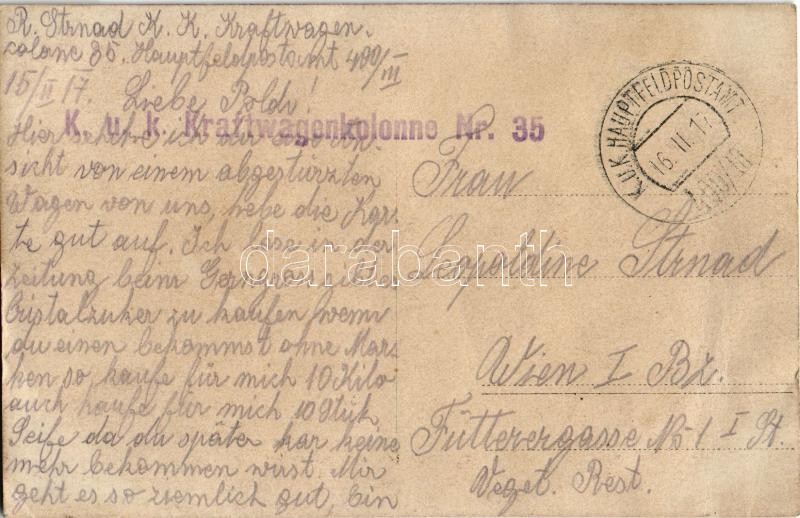 R. Strnad K. K. Kraftwagen-
colone 35. Hauptfeldpostamt 400/III
15/II 17. Liebe Poldi!
K. u. k. Kraftwagenkolonne Nr. 35
Hier ich dir eine An-
sicht von einem abgestürzten
Wagen von uns, hebe die Kar-
te gut auf. Ich lese in der
Zeitung beim Gerngross
Cristalzuker zu kaufen wenn
du einen bekommst ohne Mar-
ken so kaufe für mich 10 Kilo
auch kaufe für mich 10 Stük
Seife da du später gar keine
mehr bekommen wirst. Mir
geht es so ziemlich gut, bin
K.U.K. HAUPTFELDPOSTAMT
16. II. 17
Frau
Leopoldine Strnad
Wien I Bz.
Fütterergasse No 1 I St.
Veget. Rest.
darabanth